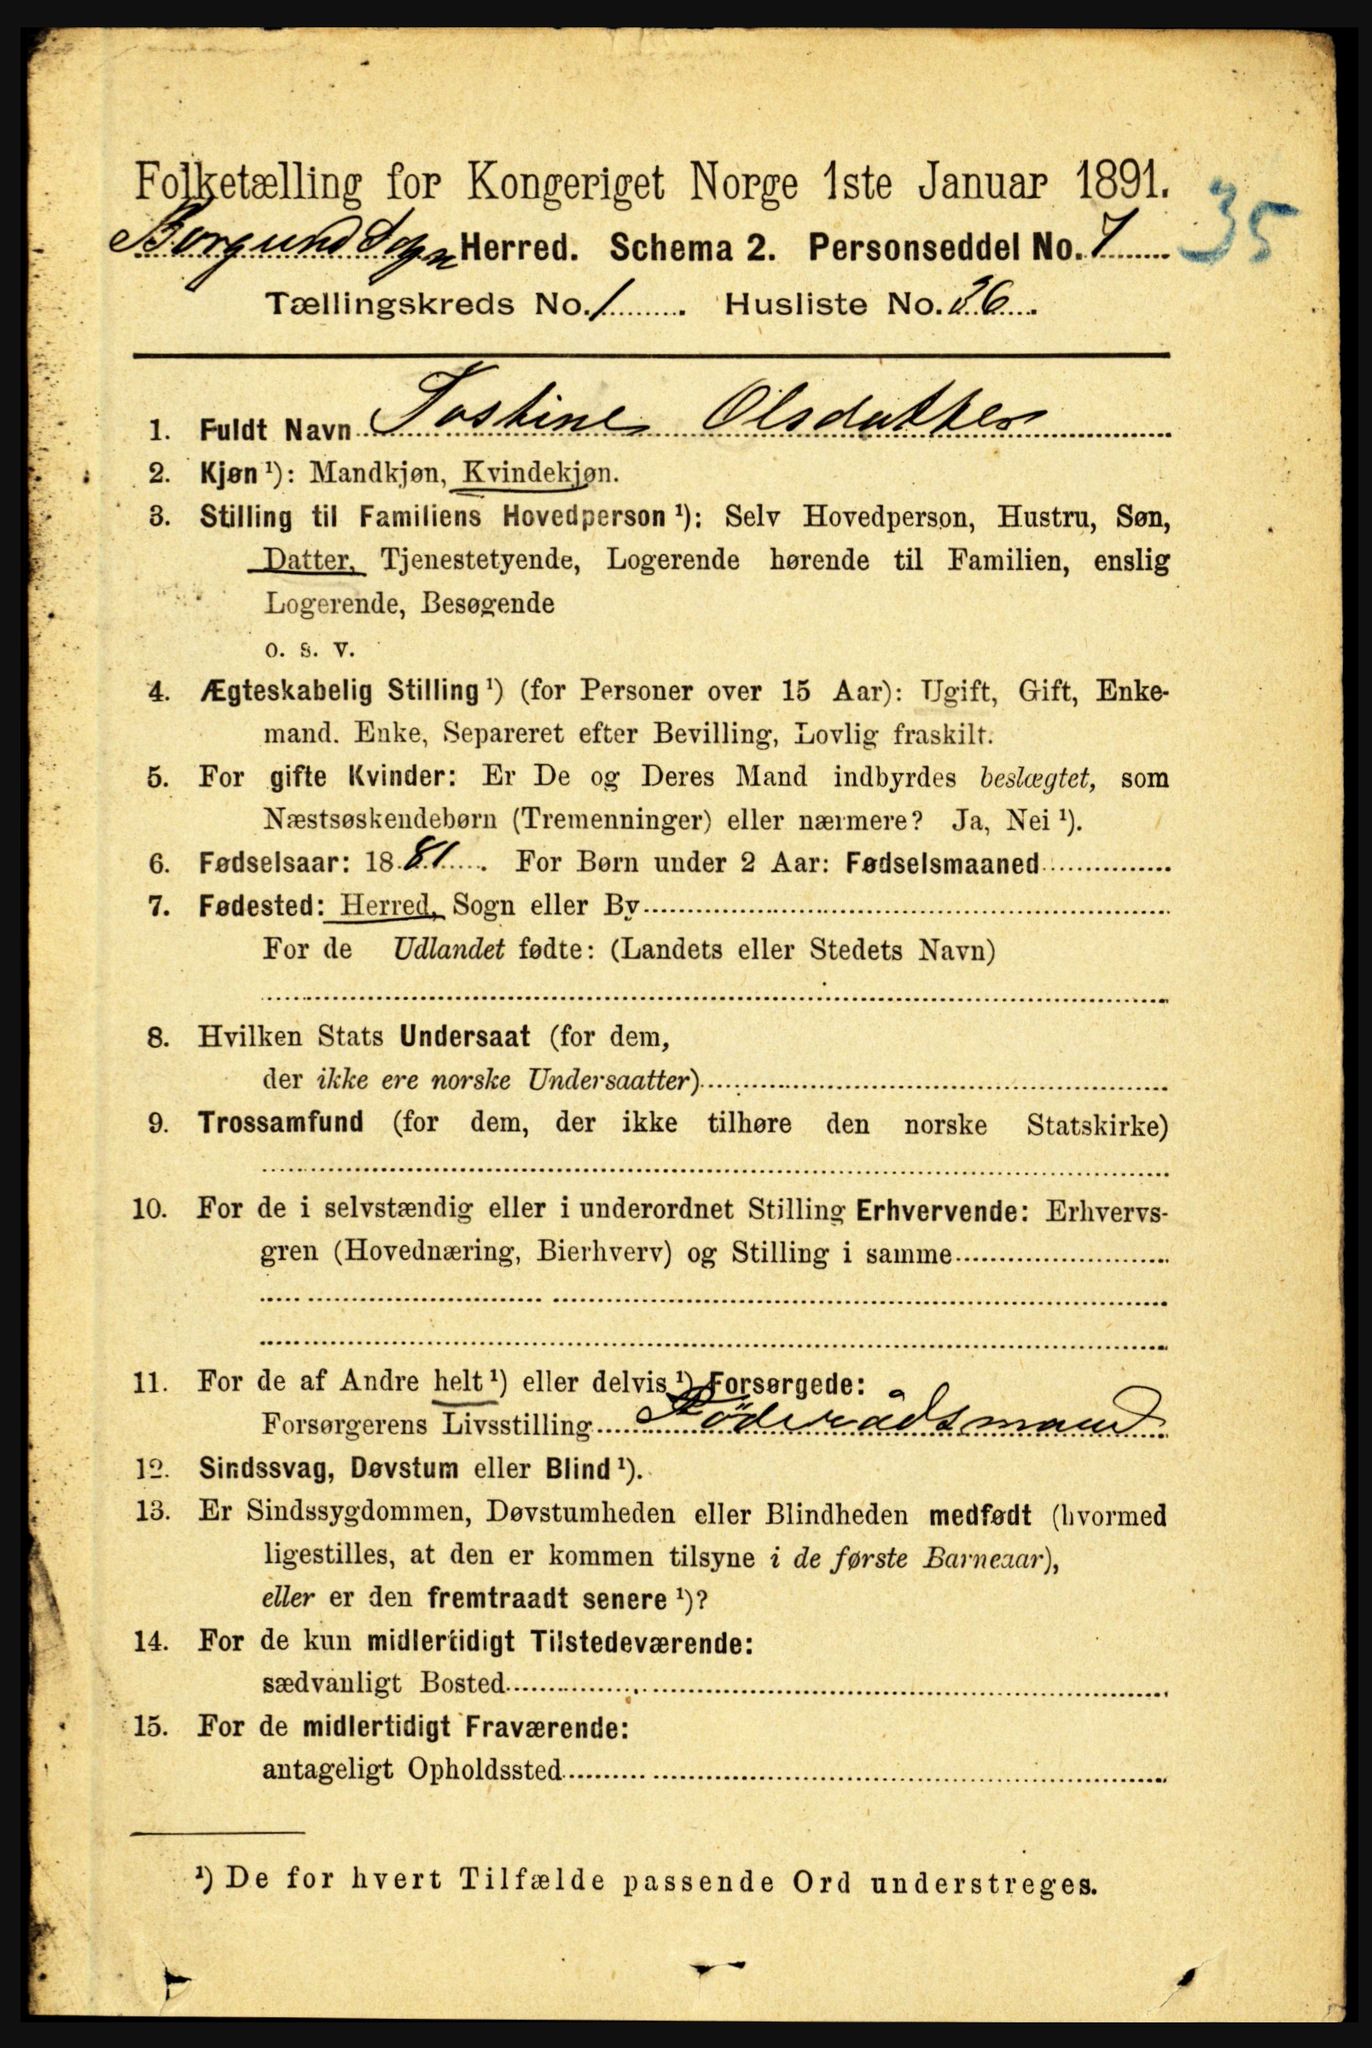 Folketælling for Kongeriget Norge 1ste Januar 1891.
35
Borgund Sogn Herred. Schema 2. Personseddel No. 7
Tællingskreds No. 1. Husliste No. 36.
1. Fuldt Navn Tostine Olsdatter
2. Kjøn ¹): Mandkjøn, Kvindekjøn.
3. Stilling til Familiens Hovedperson ¹): Selv Hovedperson, Hustru, Søn,
Datter, Tjenestetyende, Logerende hørende til Familien, enslig
Logerende, Besøgende
o. s. v.
4. Ægteskabelig Stilling ¹) (for Personer over 15 Aar): Ugift, Gift, Enke-
mand. Enke, Separeret efter Bevilling, Lovlig fraskilt.
5. For gifte Kvinder: Er De og Deres Mand indbyrdes beslægtet, som
Næstsøskendebørn (Tremenninger) eller nærmere? Ja, Nei ¹).
6. Fødselsaar: 1881. For Børn under 2 Aar: Fødselsmaaned
7. Fødested: Herred, Sogn eller By
For de Udlandet fødte: (Landets eller Stedets Navn)
8. Hvilken Stats Undersaat (for dem,
der ikke ere norske Undersaatter)
9. Trossamfund (for dem, der ikke tilhøre den norske Statskirke)
10. For de i selvstændig eller i underordnet Stilling Erhvervende: Erhvervs-
gren (Hovednæring, Bierhverv) og Stilling i samme
11. For de af Andre helt ¹) eller delvis ¹) Forsørgede:
Forsørgerens Livsstilling Föderådsmand
12. Sindssvag, Døvstum eller Blind ¹).
13. Er Sindssygdommen, Døvstumheden eller Blindheden medfødt (hvormed
ligestilles, at den er kommen tilsyne i de første Barneaar),
eller er den fremtraadt senere ¹)?
14. For de kun midlertidigt Tilstedeværende:
sædvanligt Bosted
15. For de midlertidigt Fraværende:
antageligt Opholdssted
¹) De for hvert Tilfælde passende Ord understreges.